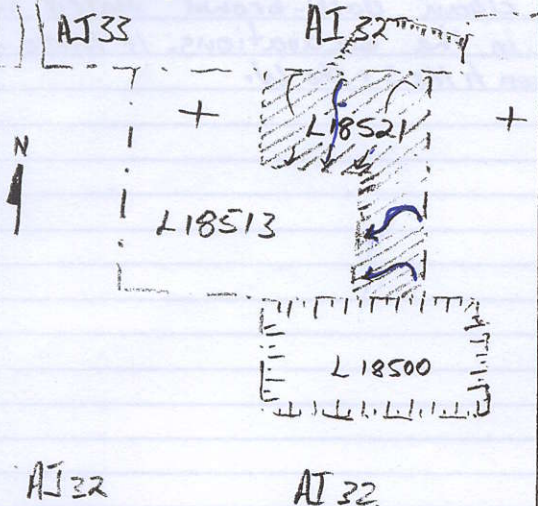 AJ33 AI 32
N
L18521
L18513
L18500
AJ32 AI 32